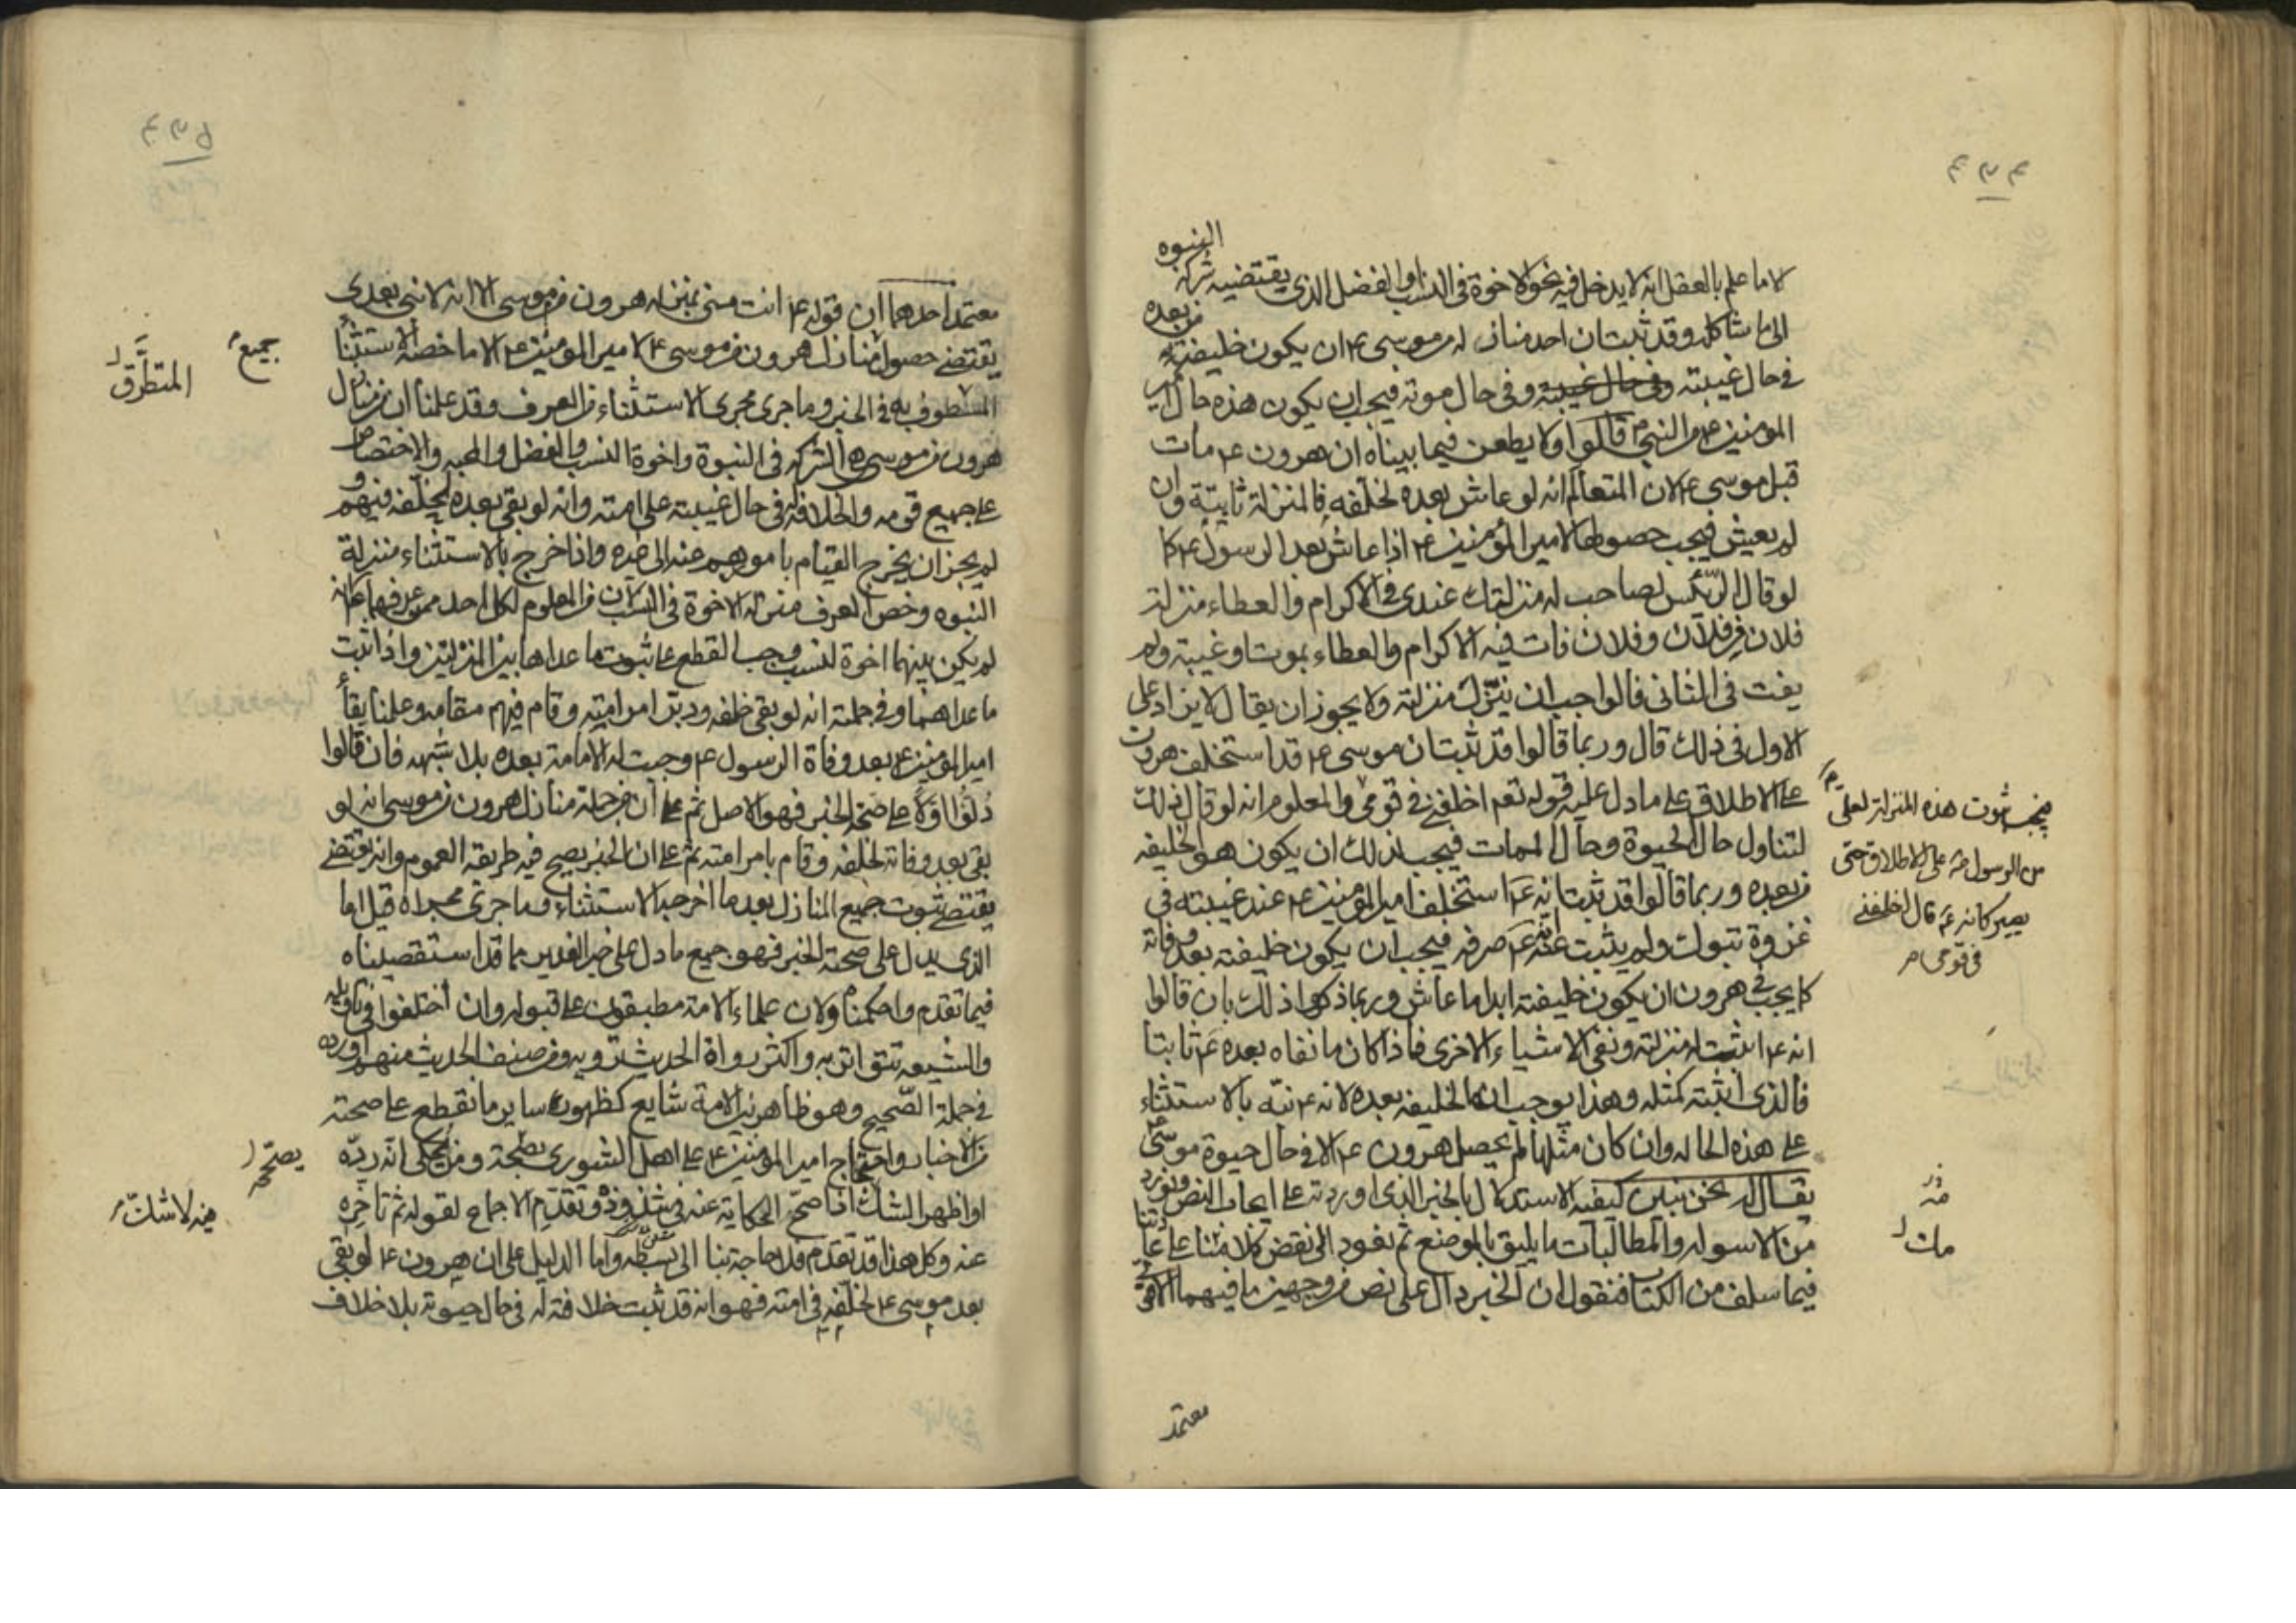 النبوه
لا ما علم بالعقل انه لا يدخل فيه نحو الاخوة فى النسب والفضل الذى يقتضيه شركة
الى ما شاكله وقد ثبت ان احد منازله من موسى ع ان يكون خليفته من بعده
فى حال غيبته وفى حال غيبته وفى حال موته فيجب ان يكون هذه حال امير
المومنين ع من النبى قالوا ولا يطعن فيما بيناه ان هرون ع مات
قبل موسى ع لان المتعالم انه لو عاش بعده لخلفه فالمنزلة ثابتة وان
لم يعيش فيجب حصولها لامير المؤمنين ع اذا عاش بعد الرسول ع كما
لو قال الرئيس لصاحب له منزلتك عندى فى الاكرام والعطاء منزلة
فلان من فلان وفلان فات فيه الاكرام والعطاء بموت او غيبته ولم
يفت فى الثانى فالواجب ان ننزل منزلته ولا يجوز ان يقال لا يزاد على
الاول فى ذلك قال وربما قالوا قد ثبت ان موسى ع قد استخلف هرون
على الاطلاق على ما دل عليه قوله تعم اخلفنى فى قومى والمعلوم انه لو قال ذلك
لتناول حال الحيوة وحال الممات فيجب لذلك ان يكون هو الخليفه
من بعده وربما قالوا قد ثبت انه ع استخلف امير المؤمنين ع عند غيبته فى
غزوة تبوك ولم يثبت عنه انه ع صرفه فيجب ان يكون خليفته بعد وفاته
كما يجب فى هرون ان يكون خليفته ابدا ما عاش وربما ذكروا ذلك بان قالوا
انه ع اثبت له منزلته ونفى الاشياء الاخرى فاذا كان ما نفاه بعده ع ثابتا
فالذى اثبته كمثله وهذا يوجب انه الخليفه بعده لانه ع نبّه بالاستثناء
على هذه الحاله وان كان مثلها لم يحصل لهرون ع الا فى حال حيوة موسى
يقال له نحن نبين كيفيه الاستدلال بالخبر الذى اوردته على ايجاب النص ونورد
من الاسوله والمطالبات ما يليق بالموضع ثم نعود الى نقض كلامه على عادتنا
فيما سلف من الكتاب فنقول ان الخبر دال على نص من وجهين ما فيهما الا قوى
معتمد
فيجب ثبوت هذه المنزلة لعلى
من الرسول صه على الاطلاق حتى
يصير كانه ع قال اخلفنى
فى قومى
معتمد احدهما ان قوله ع انت منى بمنزلة هرون من موسى الا انه لا نبى بعدى
يقتضى حصول منازل هرون من موسى ع لامير المومنين ع الا ما خصه الاستثناء
به فى الخبر وما جرى مجرى الاستثناء من العرف وقد علمنا ان من منازل
هرون من موسى ع الشركة فى النبوة واخوة النسب والفضل والمحبه والاختصاص
على جميع قومه والخلافة له فى حال غيبته على امته وانه لو بقى بعده لخلفه فيهم و
لم يجز ان يخرج القيام بامورهم عنه الى غيره واذا خرج بالاستثناء منزلة
النبوه وخص العرف منزلة الاخوة فى النسب لان من المعلوم لكل احد ممن عرفهما ع انه
لم يكن بينهما اخوة نسب وجب القطع على ثبوت ما عداها بين المنزلتين واذا ثبت
ما عداهما وفى جملته انه لو بقى خلفه ودبر امر امته وقام فيهم مقامه وعلمنا بقاء
امير المومنين ع بعد وفاة الرسول ع وجبت له الامامة بعده بلا شبهه فان قالوا
دلوا اولا على صحة الخبر فهو الاصل ثم على ان من جملة منازل هرون من موسى انه لو
بقى بعد وفاته لخلفه وقام بامر امته ثم على ان الخبر يصح فيه طريقه العموم وانه يقتضى
يقتضى ثبوت جميع المنازل بعد ما اخرجه الاستثناء وما جرى مجراه قيل اما
الذى يدل على صحة الخبر فهو جميع ما دل على خبر الغدير مما قد استقصيناه
فيما تقدم واحكمناه ولان علماء الامة مطبقون على قبوله وان اختلفوا فى تاويله
والشيعه تتواتر به واكثر رواة الحديث ترويه ومن صنف الحديث منهم اورده
فى جملة الصحيح وهو ظاهر بين الامة شايع كظهور ساير ما نقطع على صحته
من الاخبار واحتجاج امير المؤمنين ع على اهل الشورى ومن يحكى انه ردّه
او اظهر الشك اذا صحّ الحكاية عنه فى شذوذه وتقدم الاجماع لقوله ثم تاخره
عنه وكل هذا قد تقدم فلا حاجة بنا الى بسطه واما الدليل على ان هرون ع لو بقى
بعد موسى ع لخلّفه فى امته فهو انه قد ثبت خلافته له فى حال حيوته بلا خلاف
جميع
المتطرق
يصححه